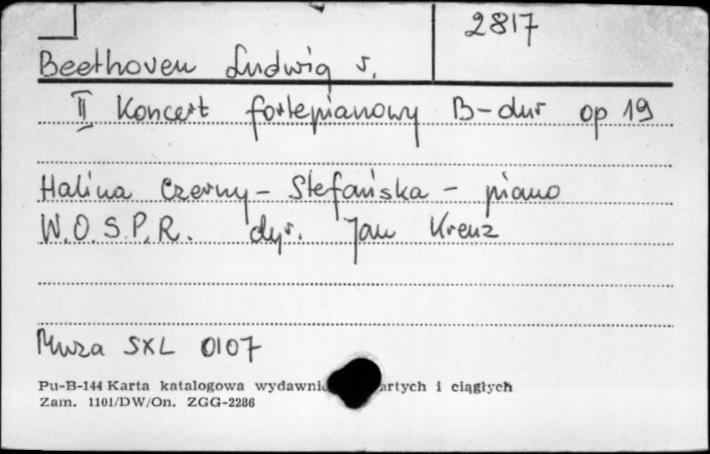 2817
Beethoven Ludwig v.
II Koncert fortepianowy B-dur op 19
Halina Czerny-Stefańska - piano
W.O.S.P.R. dyr. Jan Krenz
Muza SXL 0107
Pu-B-144 Karta katalogowa wydawni artych i ciągłych
Zam. 1101/DW/On. ZGG-2286